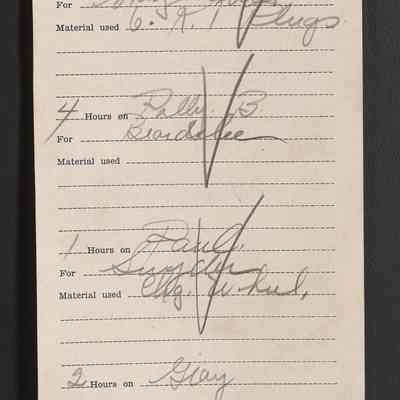 For
Material used 6. K. 1 Plugs
4 Hours on Rally B
For Beardslee
Material used
1 Hours on Paul.
For Snyder
Material used Chg. wheel,
2 Hours on Gray